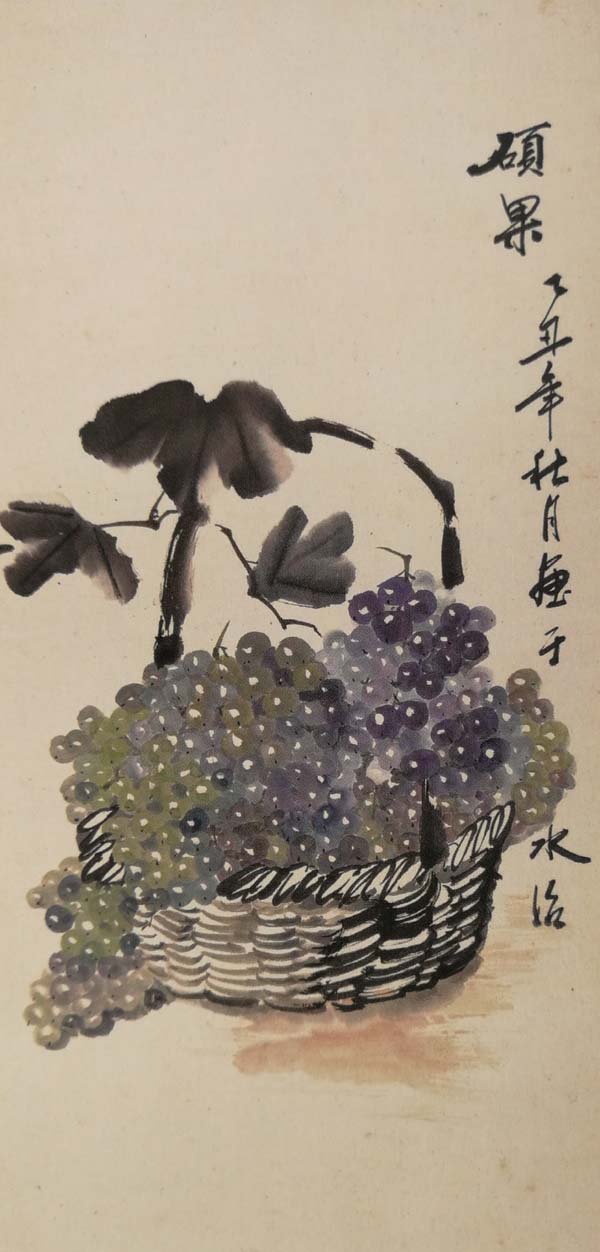 碩果
乙丑年秋月畫于
水冶